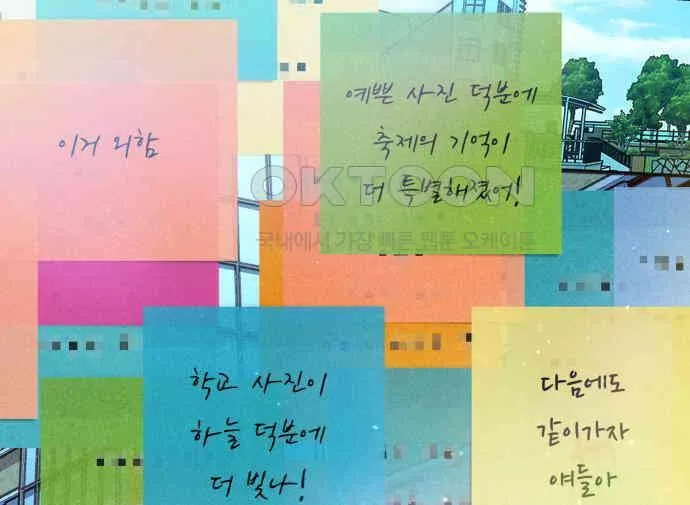 이거 외함
예쁜 사진 덕분에
축제의 기억이
더 특별해졌어!
OKTOON
국내에서 가장 빠른 웹툰 오케이툰
학교 사진이
하늘 덕분에
더 빛나!
다음에도
같이가자
얘들아